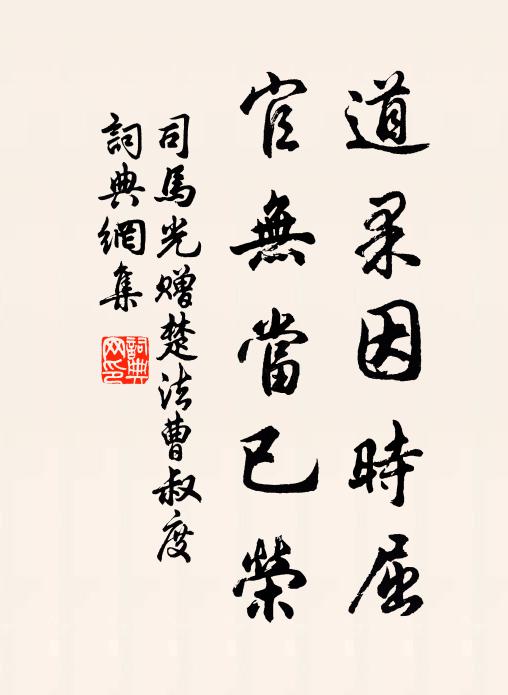 道柔因時屈
官無當已榮
司馬光贈楚法曹叔度
詞典網集
詞典
网印